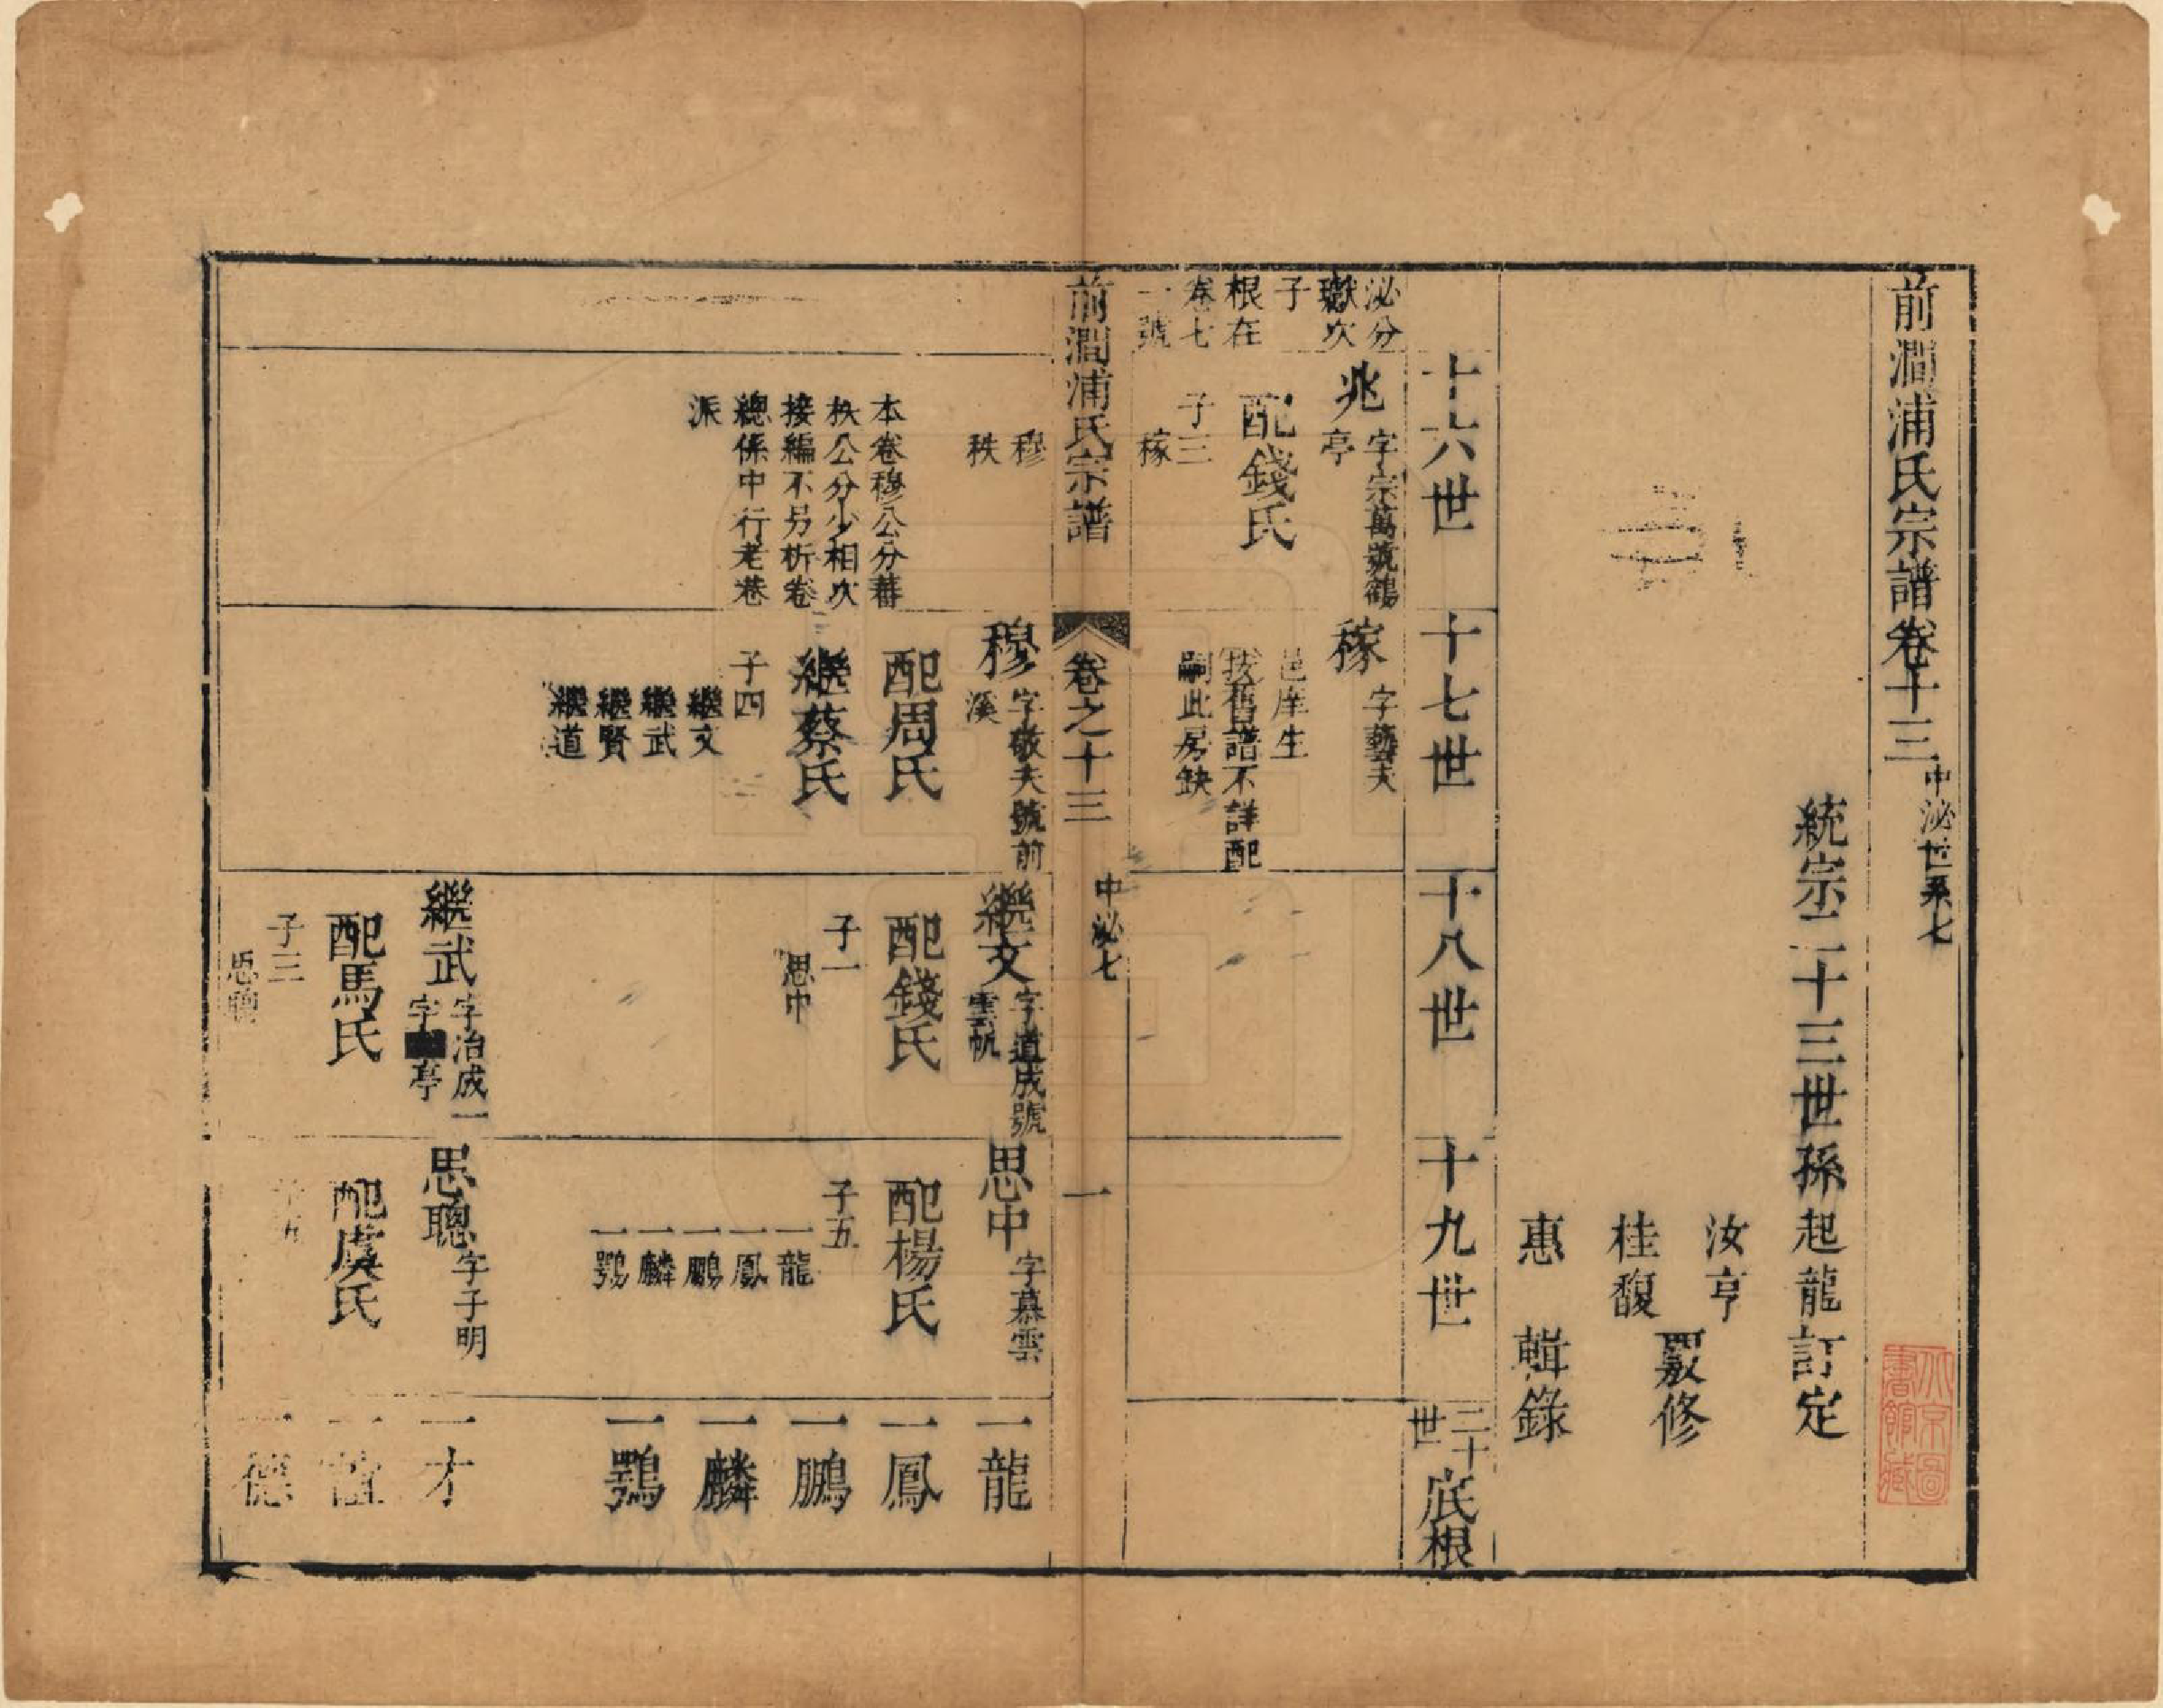 前澗浦氏宗譜卷十三 中泌世系七
統宗二十三世孫起龍訂定
汝亨
桂馥
覈修
惠
輯錄
十六世
十七世
十八世
十九世
二十世
底根
泌分
獻次
子
根在
卷七
一號
兆 字宗萬號鶴
亭
配錢氏
子三
稼
稼 字藝夫
邑庠生
按舊譜不詳配
嗣此房缺
前澗浦氏宗譜
卷之十三
中泌七
一
穆
秩
本卷穆公分蕃
秩公分少相次
接編不另析卷
總係中行老巷
派
穆 字敬夫號前
溪
配周氏
繼蔡氏
子四
繼文
繼武
繼賢
繼道
繼文 字道成號
雲帆
配錢氏
子一
思中
繼武 字治成一
字 亭
配馬氏
子三
思聰
思中 字慕雲
配楊氏
子五
一龍
一鳳
一鵬
一麟
一鶚
思聰 字子明
配虞氏
一龍
一鳳
一鵬
一麟
一鶚
一才
一德
北京圖
書館藏